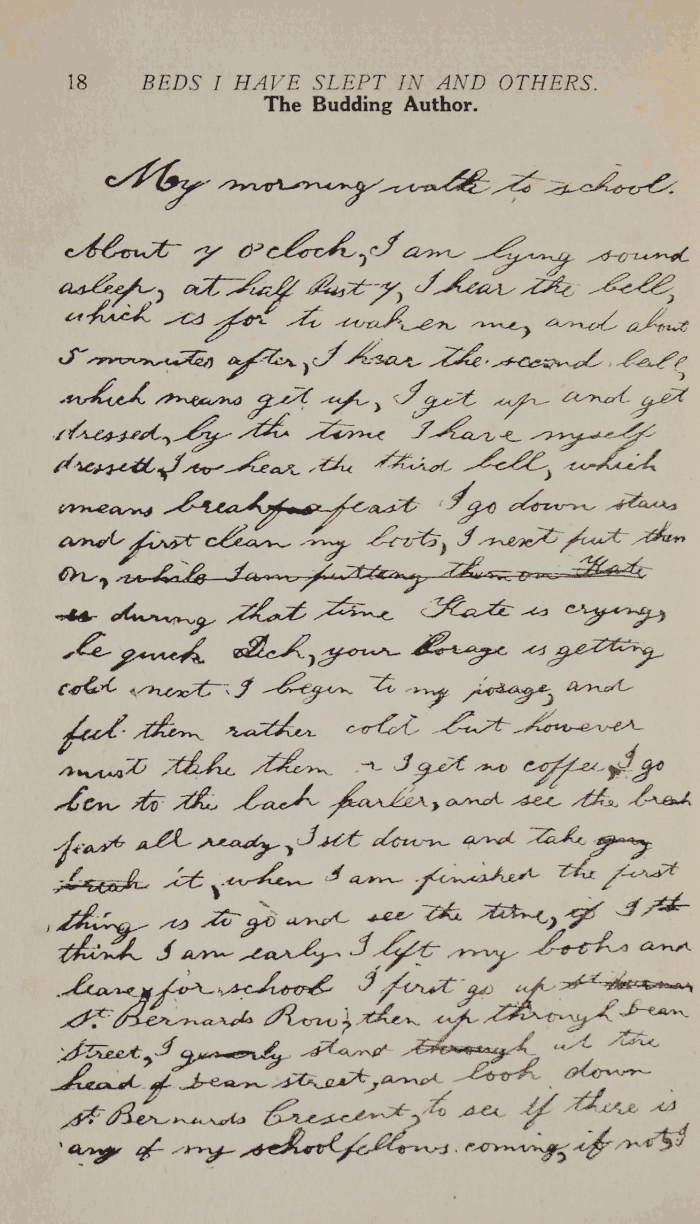 18 BEDS I HAVE SLEPT IN AND OTHERS.
The Budding Author.
My morning walk to school.
About 7 o'clock, I am lying sound
asleep, at half Past 7, I hear the bell,
which is for to waken me, and about
5 minutes after, I hear the second bell,
which means get up, I get up and get
dressed, by the time I have myself
dressed, I hear the third bell, which
means breakfeast I go down stairs
and first clean my boots, I next put them
on, while I am putting them on Kate
is during that time Kate is crying,
be quick Dick, your Porage is getting
cold next I begin to my posage, and
feel them rather cold but however
must take them I get no coffee, I go
ben to the back parler, and see the break
feast all ready, I sit down and take
break it, when I am finished the first
thing is to go and see the time, if I
think I am early I lift my books and
leave for school I first go up
St. Bernards Row, then up through Dean
street, I stand through at the
head of Dean street, and look down
St. Bernards Crescent, to see if there is
any of my schoolfellows coming, if not, I